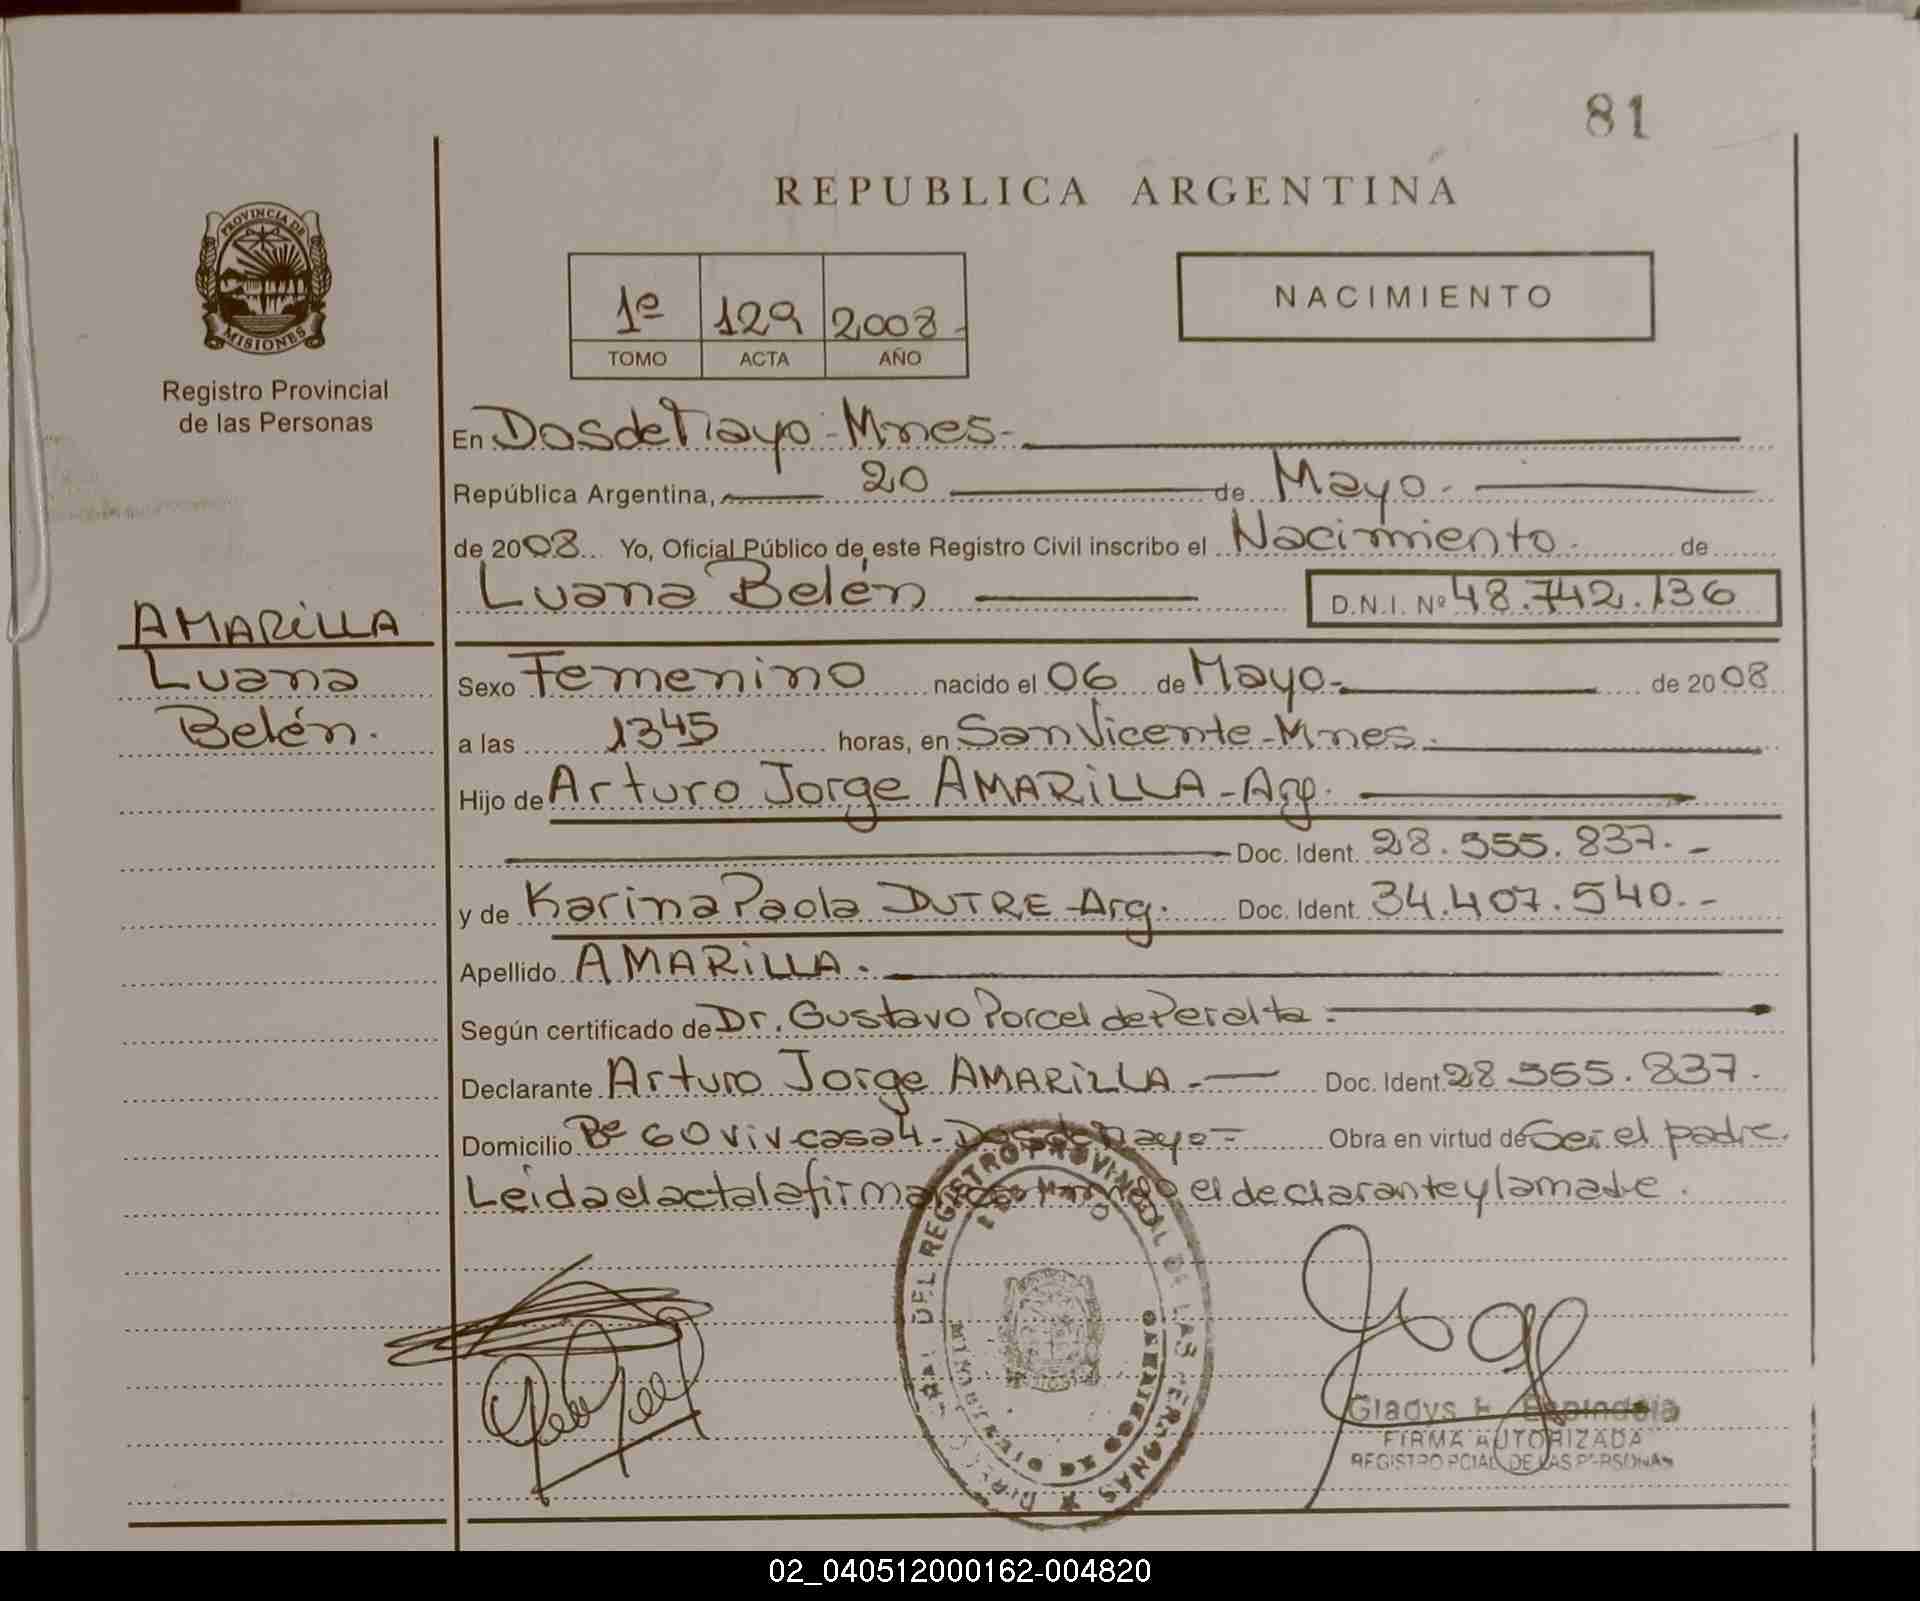 81
REPUBLICA ARGENTINA
PROVINCIA DE
MISIONES
Registro Provincial
de las Personas
1º 129 2008
TOMO ACTA AÑO
NACIMIENTO
En Dos de Mayo - Mnes -
República Argentina, 20 de Mayo.
de 2008. Yo, Oficial Público de este Registro Civil inscribo el Nacimiento de
Luana Belén D.N.I. Nº 48.742.136
AMARILLA
Luana
Belén.
Sexo Femenino nacido el 06 de Mayo - de 2008
a las 1345 horas, en San Vicente - Mnes.
Hijo de Arturo Jorge AMARILLA - Arg.
Doc. Ident. 28.555.837. -
y de Karina Paola DUTRE - Arg. Doc. Ident. 34.407.540. -
Apellido AMARILLA.
Según certificado de Dr. Gustavo Porcel de Peralta.
Declarante Arturo Jorge AMARILLA. - Doc. Ident. 28.555.837.
Domicilio Bº 60 viv-casa 4 - Dos de Mayo - Obra en virtud de Ser el padre.
Leida el acta la firman conmigo el declarante y la madre.
DEL REGISTRO PROVINCIAL DE LAS PERSONAS
Gladys E. Espindola
FIRMA AUTORIZADA
REGISTRO PCIAL DE LAS PERSONAS
02_040512000162-004820